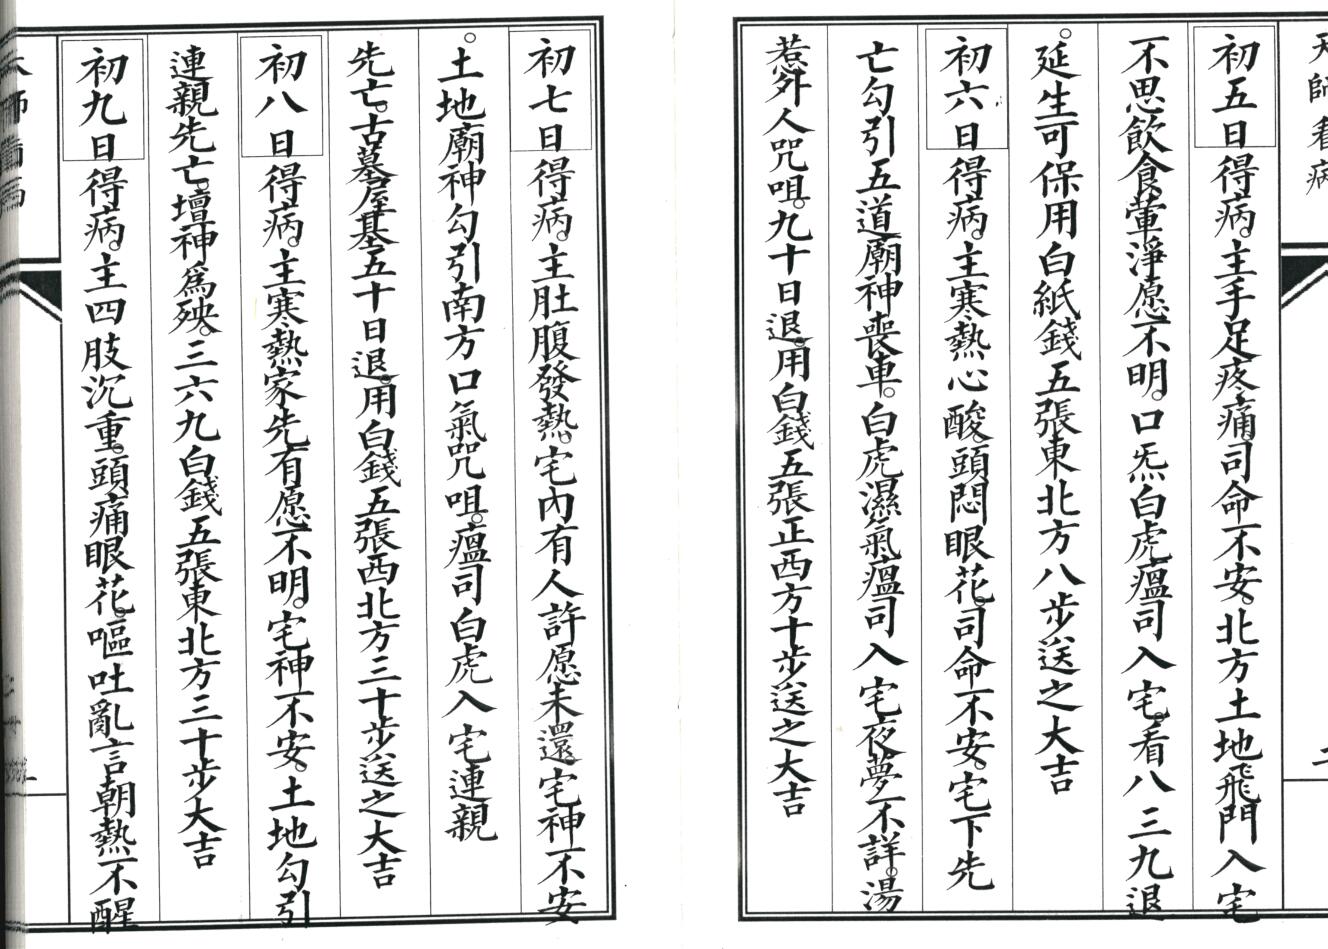 天師看病
初五日得病。主手足疼痛司命不安。北方土地飛門入宅
不思飲食葷淨愿不明。口炁白虎瘟司入宅。看八三九退
。延生可保用白紙錢五張東北方八步送之大吉
初六日得病。主寒熱心酸。頭悶眼花。司命不安。宅下先
亡勾引五道廟神喪車。白虎濕氣瘟司入宅夜夢不詳。湯
惹外人咒咀。九十日退。用白錢五張正西方十步送之大吉
初七日得病。主肚腹發熱。宅內有人許愿未還宅神不安
。土地廟神勾引南方口氣咒咀。瘟司白虎入宅連親
先亡。古墓屋基五十日退。用白錢五張西北方三十步送之大吉
初八日得病。主寒熱家先有愿不明。宅神不安。土地勾引
連親先亡。壇神爲殃。三六九白錢五張東北方三十步大吉
初九日得病。主四肢沉重。頭痛眼花。嘔吐亂言朝熱不醒